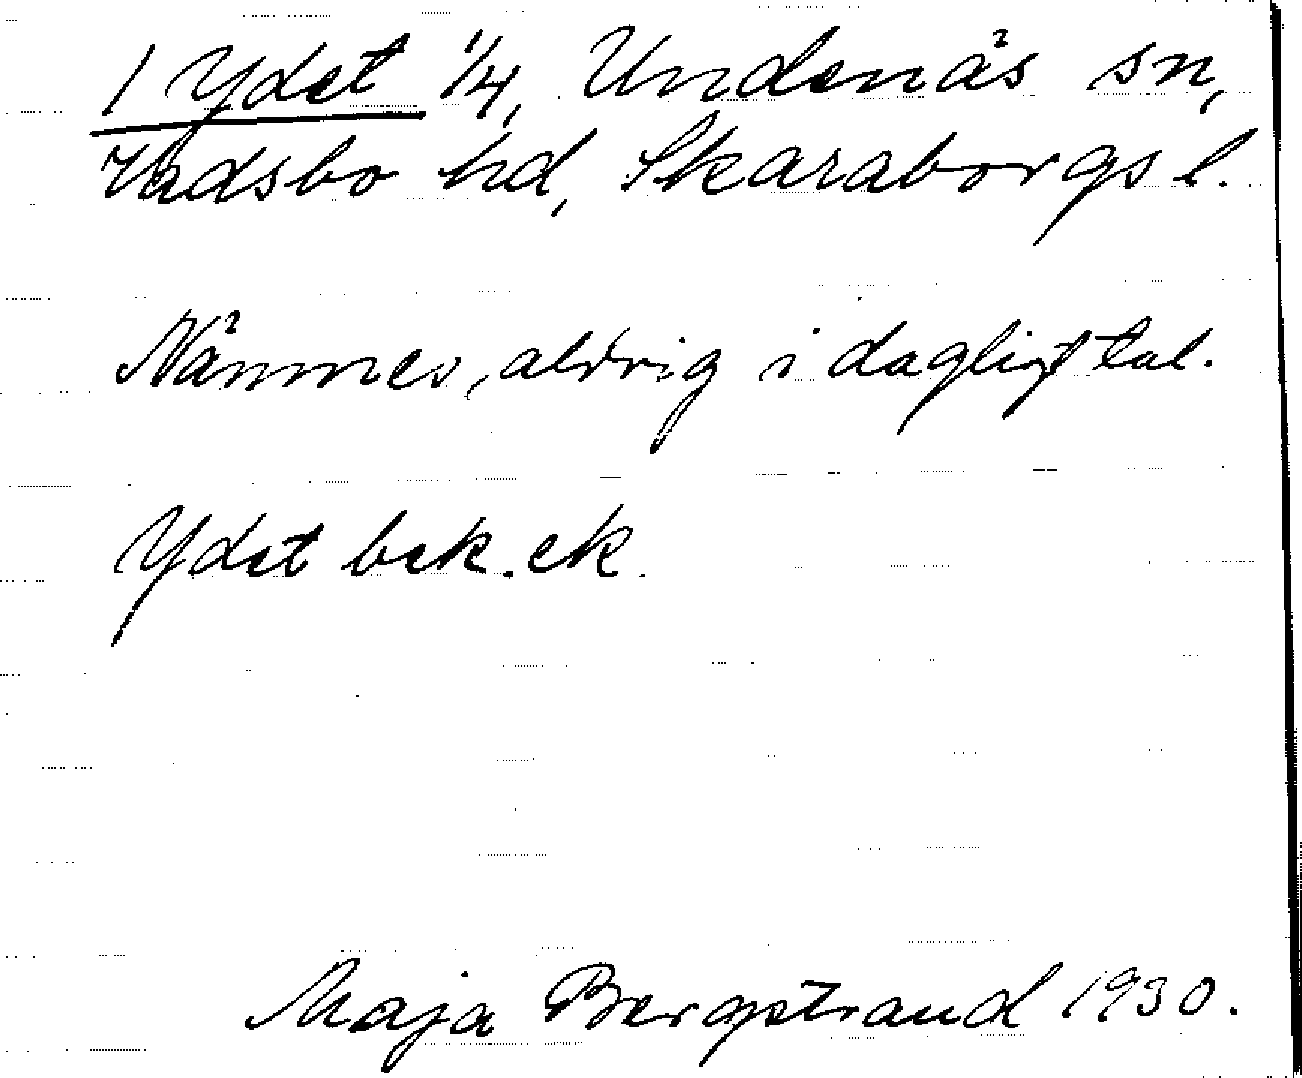 1 Ydet 1/4, Undenäs sn,
Vadsbo hd, Skaraborgs l.
Nämnes aldrig i dagligt tal.
Ydet bek. ek.
Maja Bergstrand 1930.